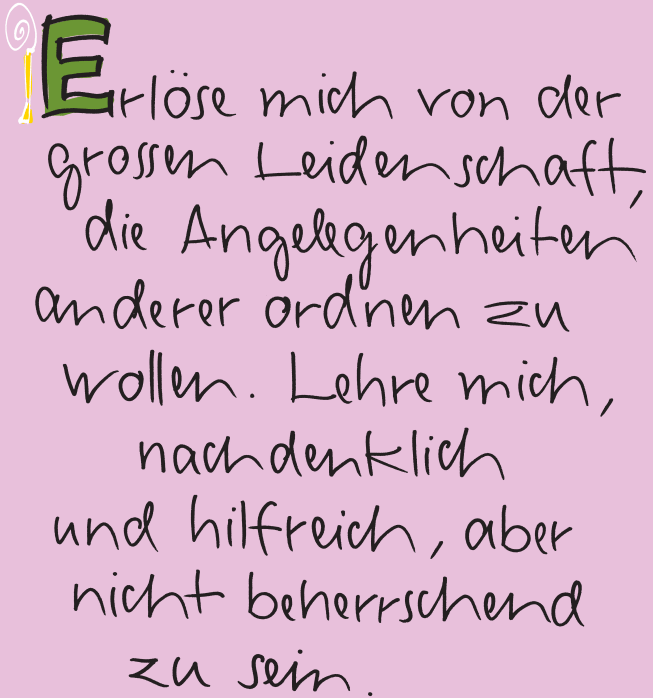 Erlöse mich von der
grossen Leidenschaft,
die Angelegenheiten
anderer ordnen zu
wollen. Lehre mich,
nachdenklich
und hilfreich, aber
nicht beherrschend
zu sein.